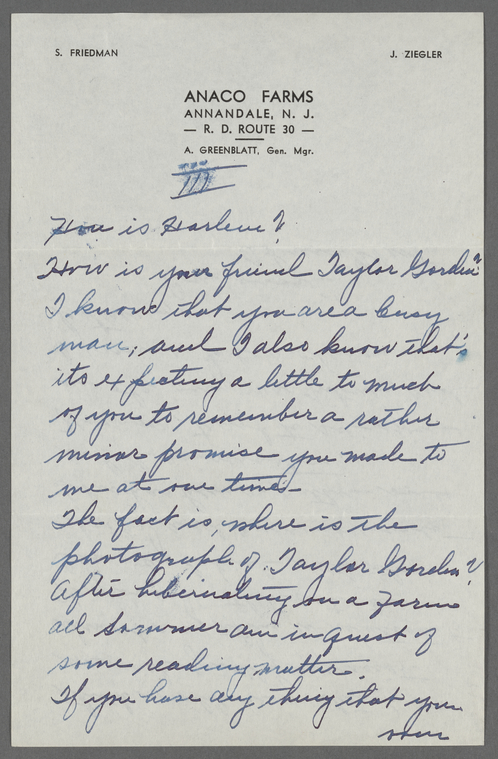 S. FRIEDMAN
J. ZIEGLER
ANACO FARMS
ANNANDALE, N. J.
— R. D. ROUTE 30 —
A. GREENBLATT, Gen. Mgr.
III
How is Harlem?
How is your friend Taylor Gordon?
I know that you are a busy
man; and I also know that's
its expecting a little to much
of you to remember a rather
minor promise you made to
me at one time.
The fact is, where is the
photograph of Taylor Gordon?
After hibernating on a farm
all sommer am in quest of
some reading matter.
If you have any thing that your